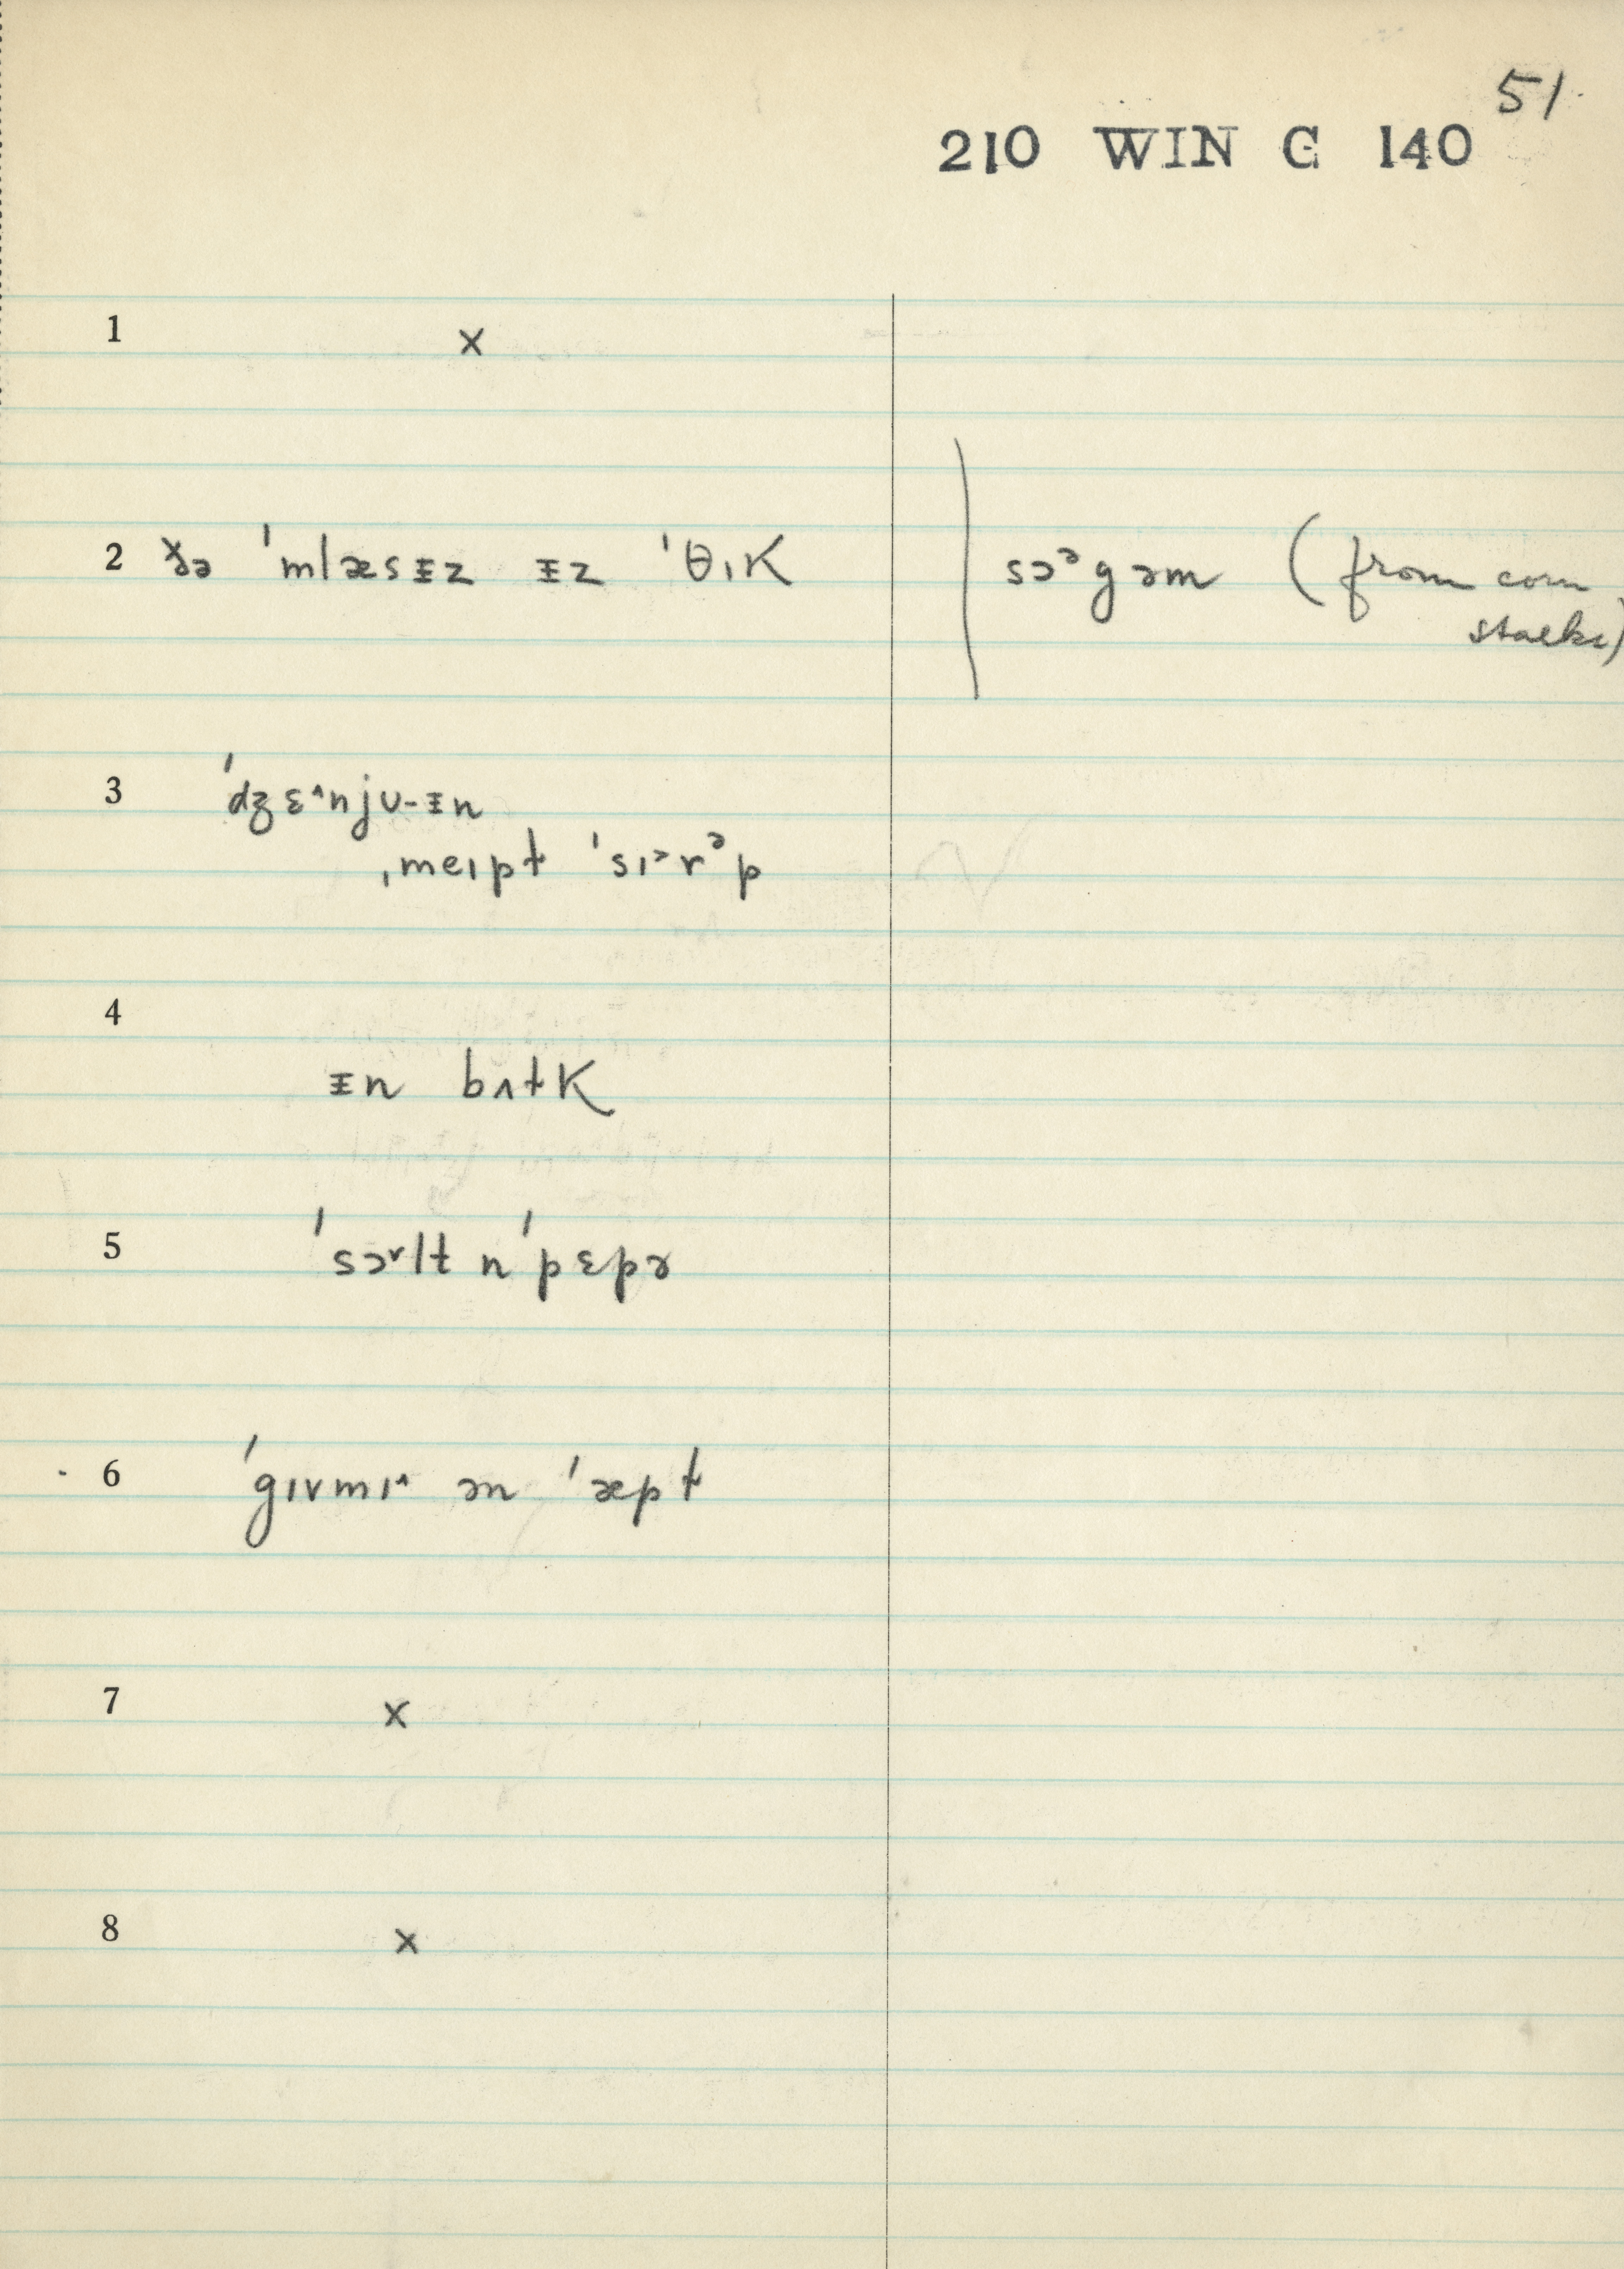 51.
210 WIN C 140
1 x
2 ðə ˈmlæsᵻz ᵻz ˈθɪk
sɔᵊgəm (from corn
stalks)
3 ˈdʒɛ^njʊ-ᵻn
ˌmeɪpɫ ˈsɪᵊrᵊp
4
ᵻn bʌɫk
5 ˈsɔ˅lt n ˈpɛpɚ
6 ˈgɪvmɪ^ ən ˈæpɫ
7 x
8 x